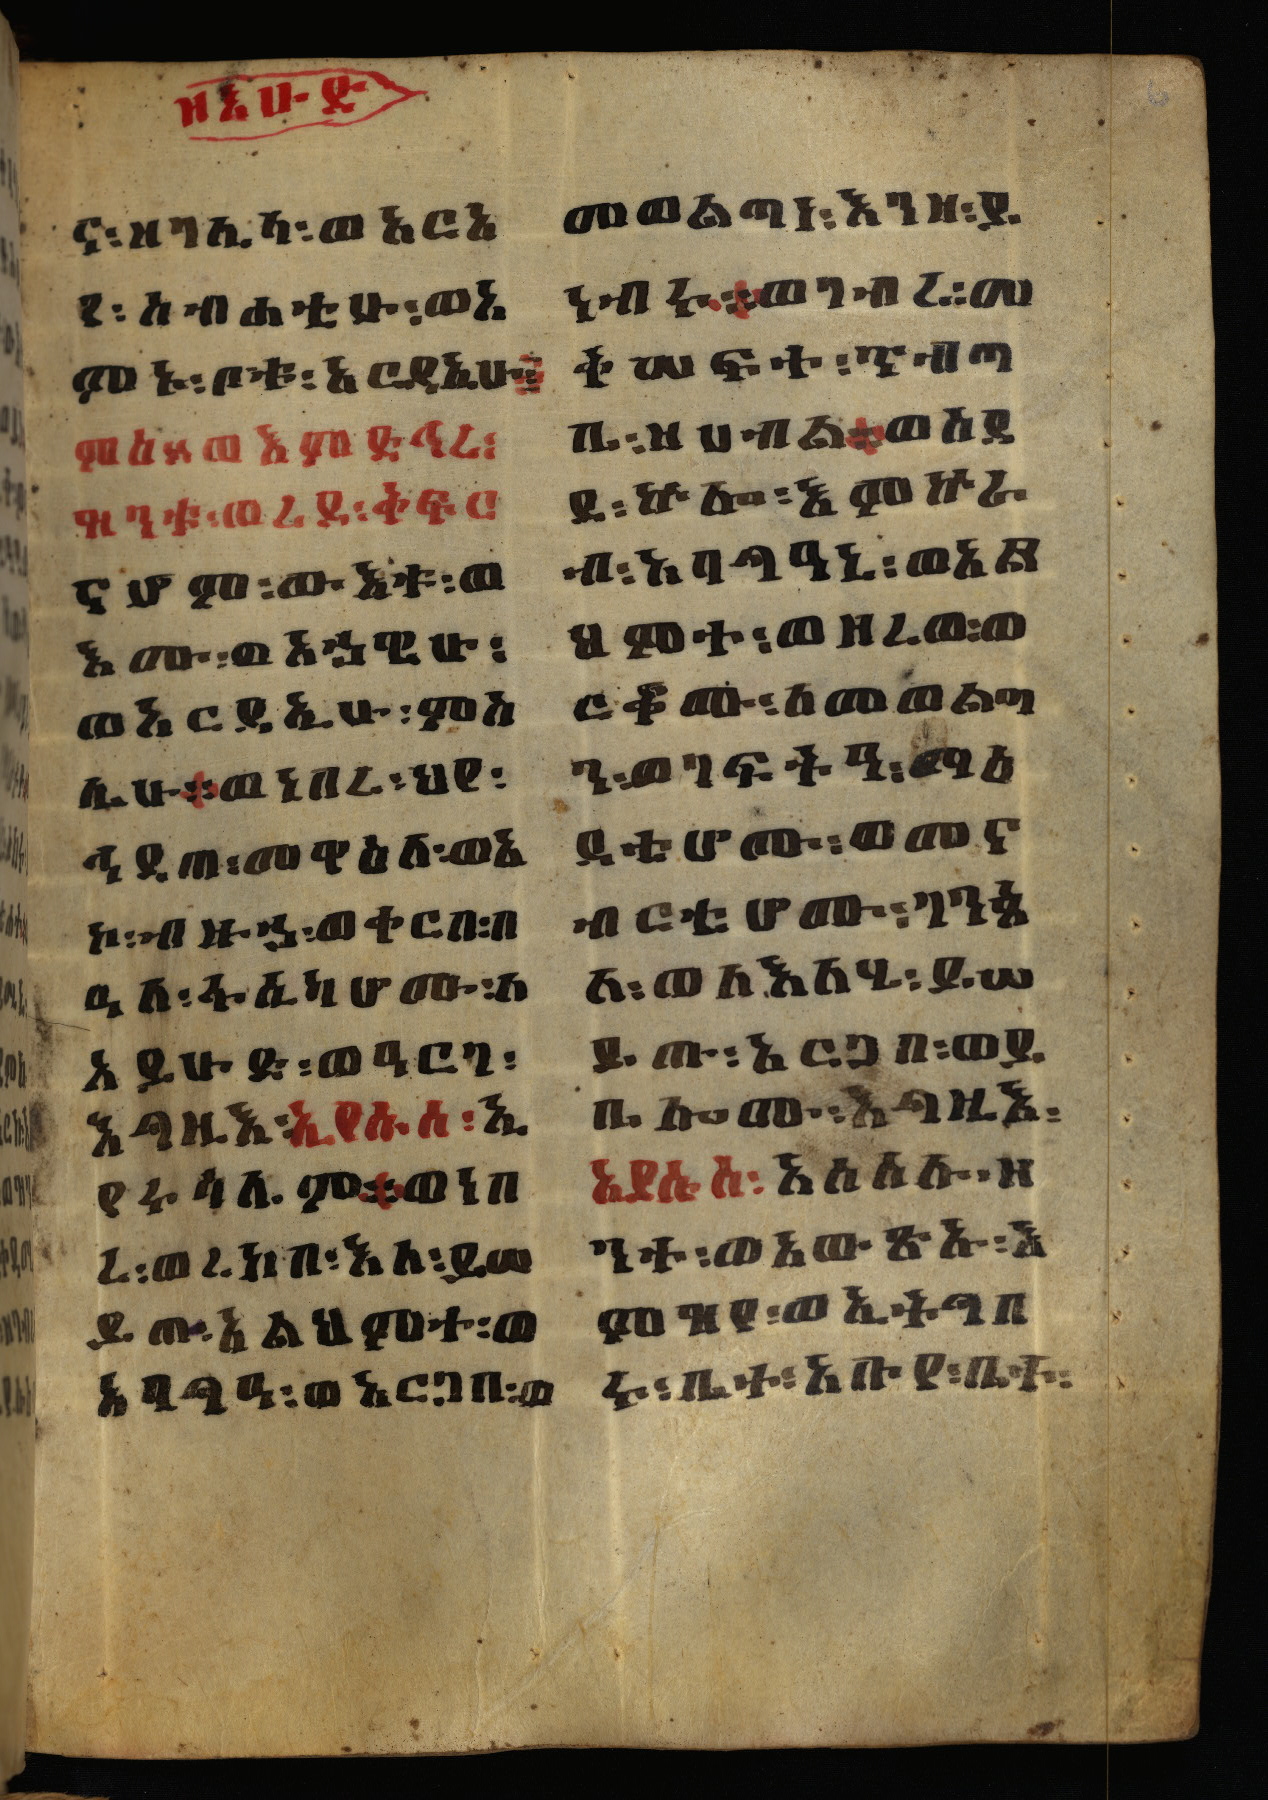 ዘእሁድ
ና፡ዘገሊላ፡ወአርአ
የ፡ስብሐቲሁ፡ወአ
ምኑ፡ቦቱ፡አርዳኢሁ፡፡
ምዕ፨ወእምድኅረ፡
ዝንቱ፡ወረደ፡ቅፍር
ናሆም፡ውእቱ፡ወ
እሙ፡ወአኃዊሁ፡
ወአርዳኢሁ፡ምስ
ሌሁ፨ወነበረ፡ህየ፡
ኅዳጠ፡መዋዕለ፡ወአ
ኮ፡ብዙኃ፡ወቀርበ፡በ
ዓለ፡ፋሲካሆሙ፡ለ
አይሁድ፡ወዓርገ፡
እግዚእ፡ኢየሱስ፡ኢ
የሩሳሌም፨ወነበ
ረ፡ወረከበ፡እለ፡ይሠ
ይጡ፡አልህምተ፡ወ
አባግዓ፡ወአርጋበ፡ወ
መወልጣነ፡እንዘ፡ይ
ነብሩ፨ወገብረ፡መ
ቅሠፍተ፡ጥብጣ
ቤ፡ዘሀብል፨ወሰደ
ደ፡ኵሎ፡እምኵራ
ብ፡አባግዓኒ፡ወአል
ህምተ፡ወዘረወ፡ወ
ርቆሙ፡ለመወልጣ
ን፡ወገፍትዓ፡ማዕ
ዳቲሆሙ፡ወመና
ብርቲሆሙ፡ገንጰ
ለ፡ወለእለሂ፡ይሠ
ይጡ፡አርጋበ፡ወይ
ቤሎሙ፡እግዚእ፡
ኢየሱስ፡አሰስሉ፡ዘ
ንተ፡ወአውጽኡ፡እ
ምዝየ፡ወኢትግበ
ሩ፡ቤተ፡አቡየ፡ቤተ፡